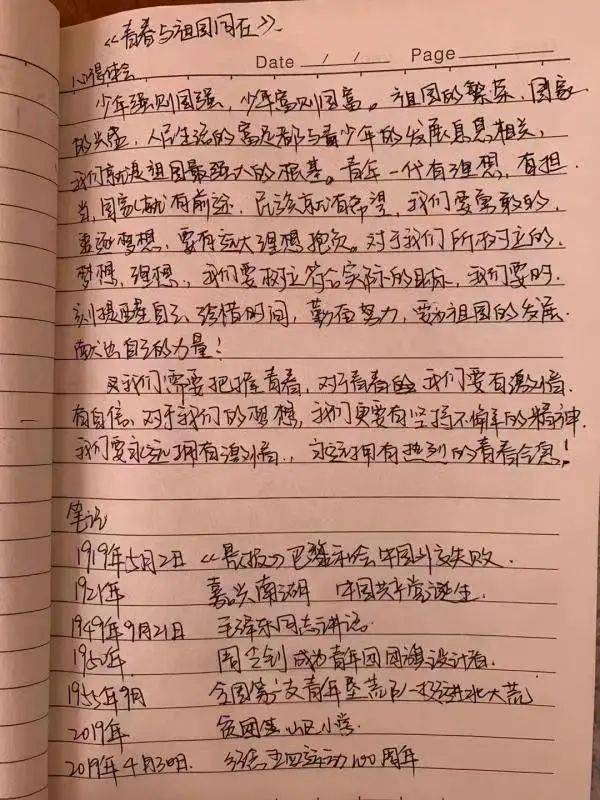 《青春与祖国同在》
Date / / Page
心得体会
少年强则国强，少年富则国富。祖国的繁荣，国家
的兴盛，人民生活的富足都与青少年的发展息息相关，
我们就是祖国最强大的根基。青年一代有理想，有担
当，国家就有前途，民族就有希望，我们要勇敢的，
追逐梦想，要有远大理想抱负。对于我们所树立的，
梦想，理想，我们要树立符合实际的目标，我们要时
刻提醒自己，珍惜时间，勤奋努力，要为祖国的发展
献出自己的力量！
我们需要把握青春，对于青春的 我们要有激情
有自信、对于我们的梦想，我们更要有坚持不懈的精神
我们要永远拥有激情，永远拥有热烈的青春气息！
笔记
1919年5月2日 《晨报》巴黎和会中国外交失败.
1921年 嘉兴南湖 中国共产党诞生.
1949年9月21日 毛泽东同志讲话.
1950年 周令钊成为青年团团旗设计者.
1955年9月 全国第一支青年垦荒队-挺进北大荒
2019年 贫困 山区小学.
2019年4月30日. 纪念五四运动100周年